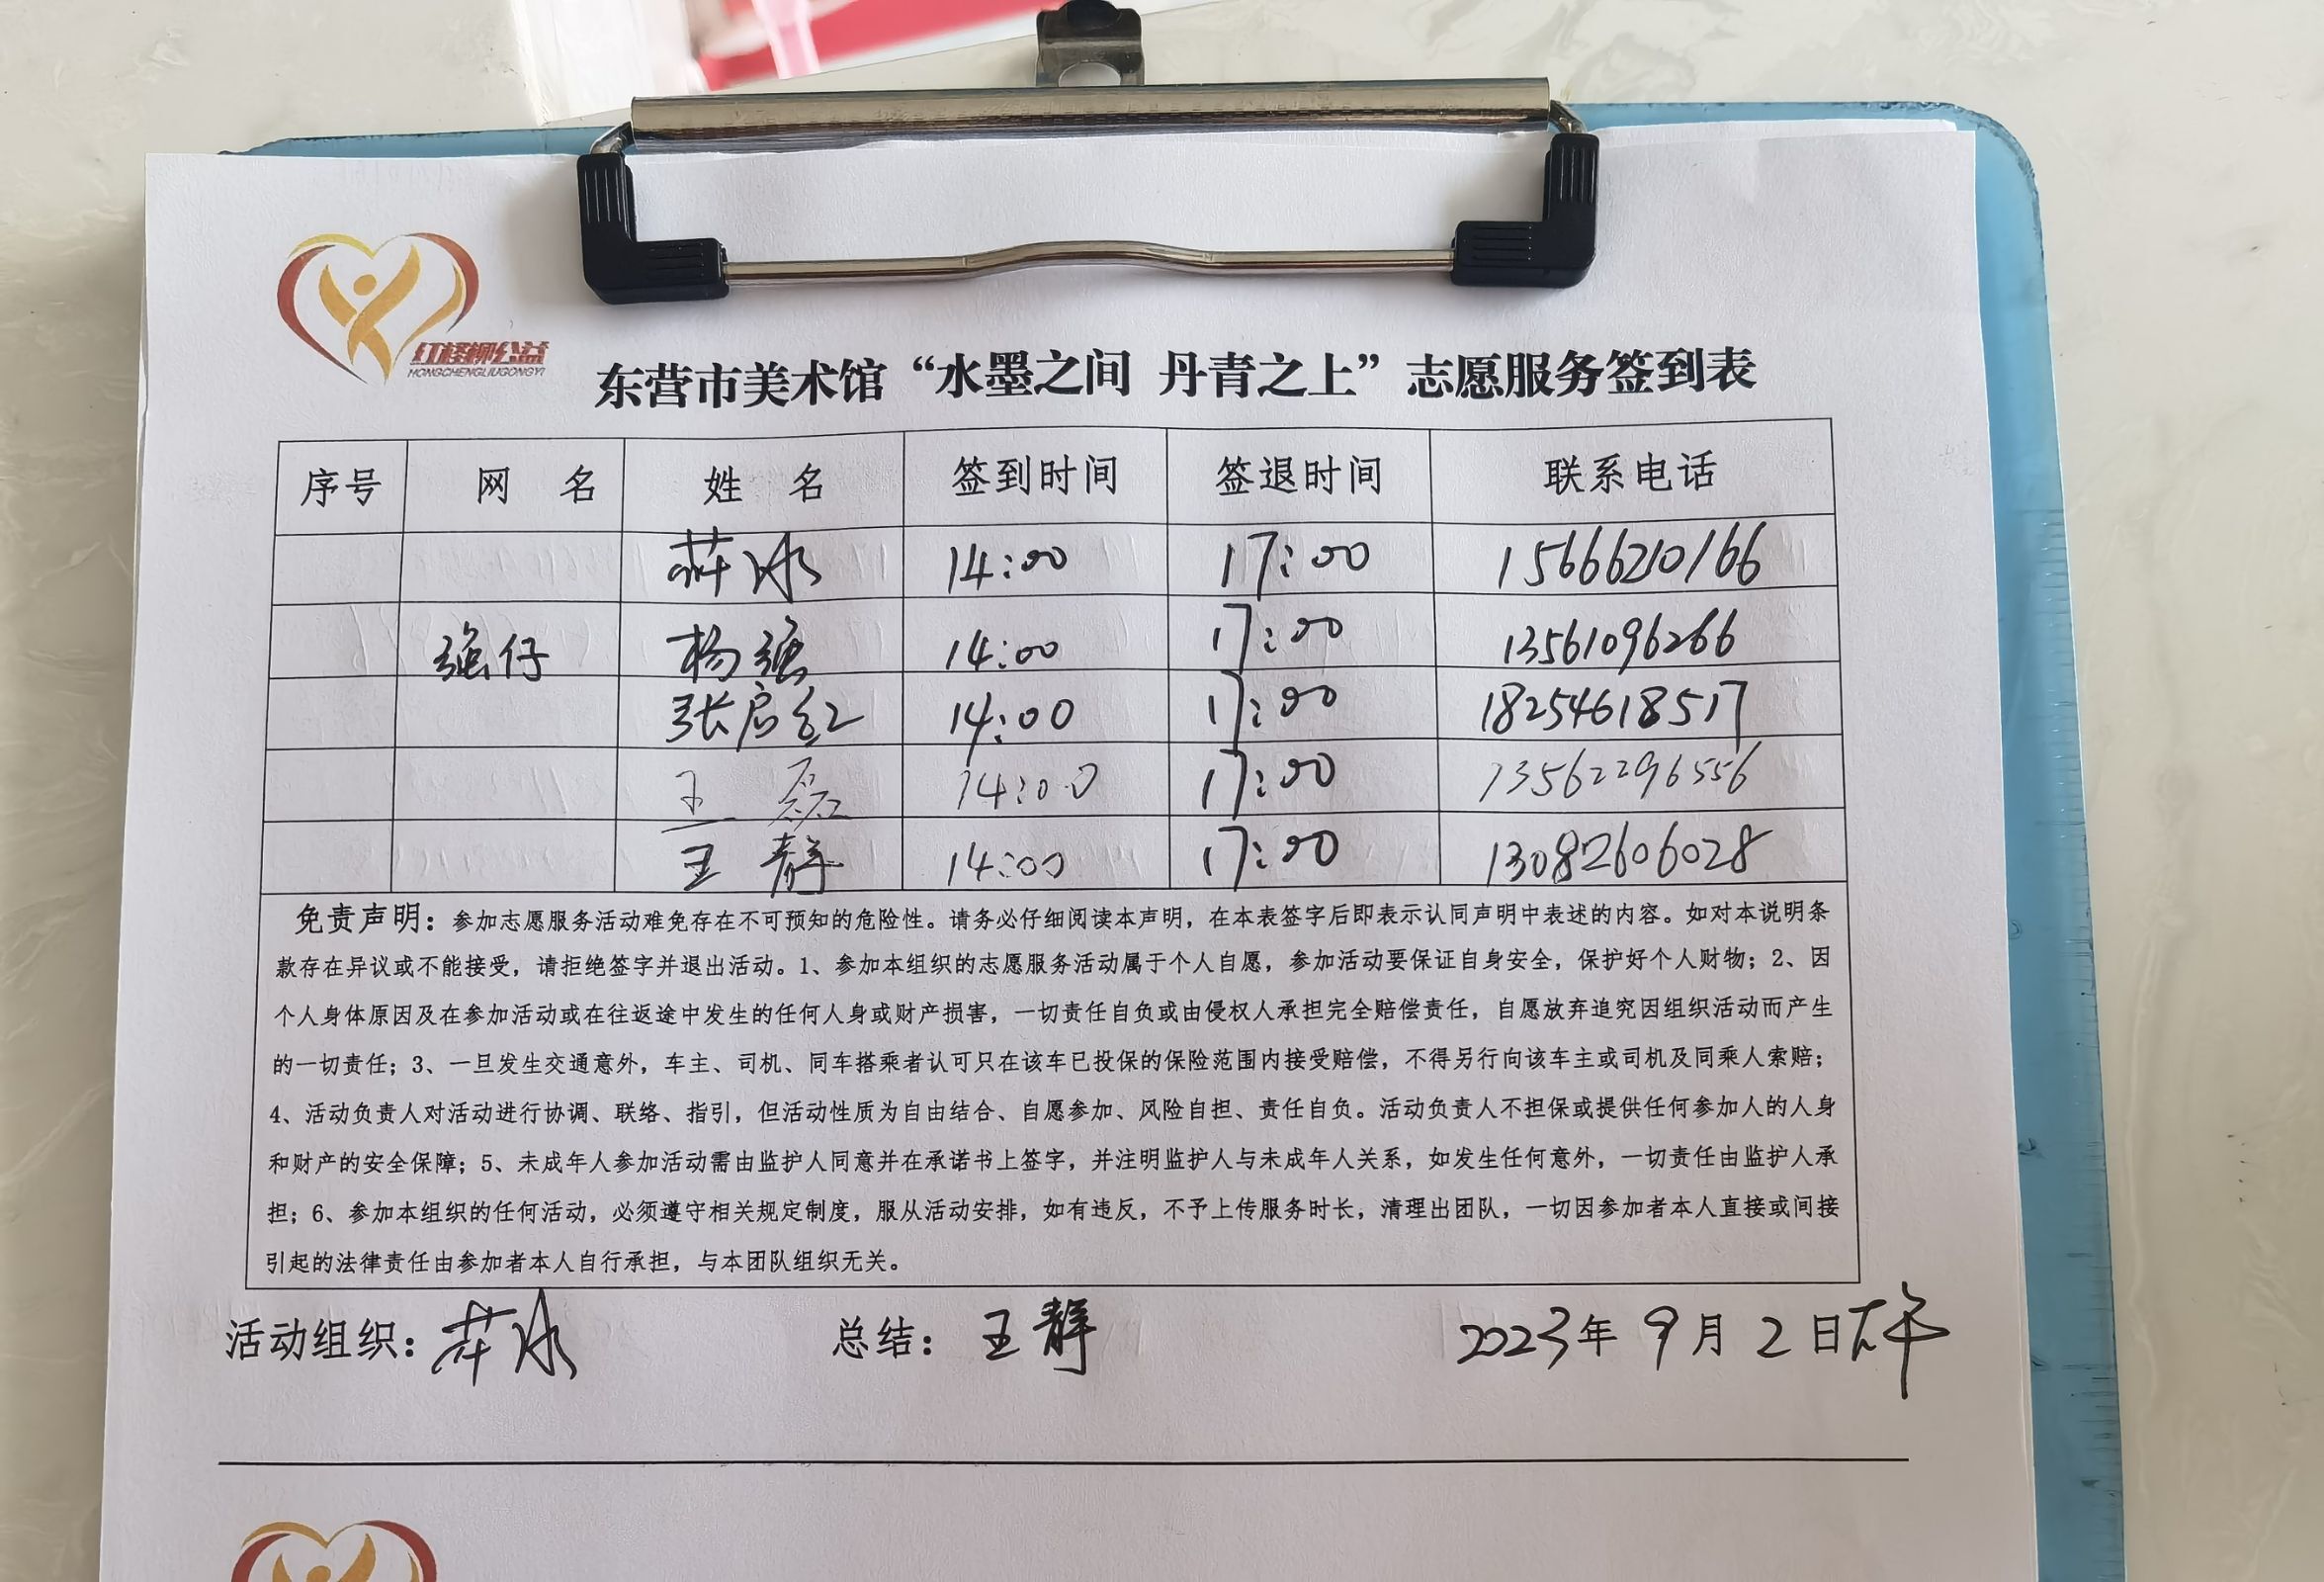 红柽柳公益
HONGCHENGLIUGONGYI
东营市美术馆“水墨之间 丹青之上”志愿服务签到表
序号 网 名 姓 名 签到时间 签退时间 联系电话
冰 14:00 17:00 15666210166
强仔 杨强 14:00 17:00 13561096266
张启红 14:00 17:00 18254618517
王磊 14:00 17:00 13562296556
王静 14:00 17:00 13082606028
免责声明：参加志愿服务活动难免存在不可预知的危险性。请务必仔细阅读本声明，在本表签字后即表示认同声明中表述的内容。如对本说明条
款存在异议或不能接受，请拒绝签字并退出活动。1、参加本组织的志愿服务活动属于个人自愿，参加活动要保证自身安全，保护好个人财物；2、因
个人身体原因及在参加活动或在往返途中发生的任何人身或财产损害，一切责任自负或由侵权人承担完全赔偿责任，自愿放弃追究因组织活动而产生
的一切责任；3、一旦发生交通意外，车主、司机、同车搭乘者认可只在该车已投保的保险范围内接受赔偿，不得另行向该车主或司机及同乘人索赔；
4、活动负责人对活动进行协调、联络、指引，但活动性质为自由结合、自愿参加、风险自担、责任自负。活动负责人不担保或提供任何参加人的人身
和财产的安全保障；5、未成年人参加活动需由监护人同意并在承诺书上签字，并注明监护人与未成年人关系，如发生任何意外，一切责任由监护人承
担；6、参加本组织的任何活动，必须遵守相关规定制度，服从活动安排，如有违反，不予上传服务时长，清理出团队，一切因参加者本人直接或间接
引起的法律责任由参加者本人自行承担，与本团队组织无关。
活动组织：冰 总结：王静 2023年9月2日下午